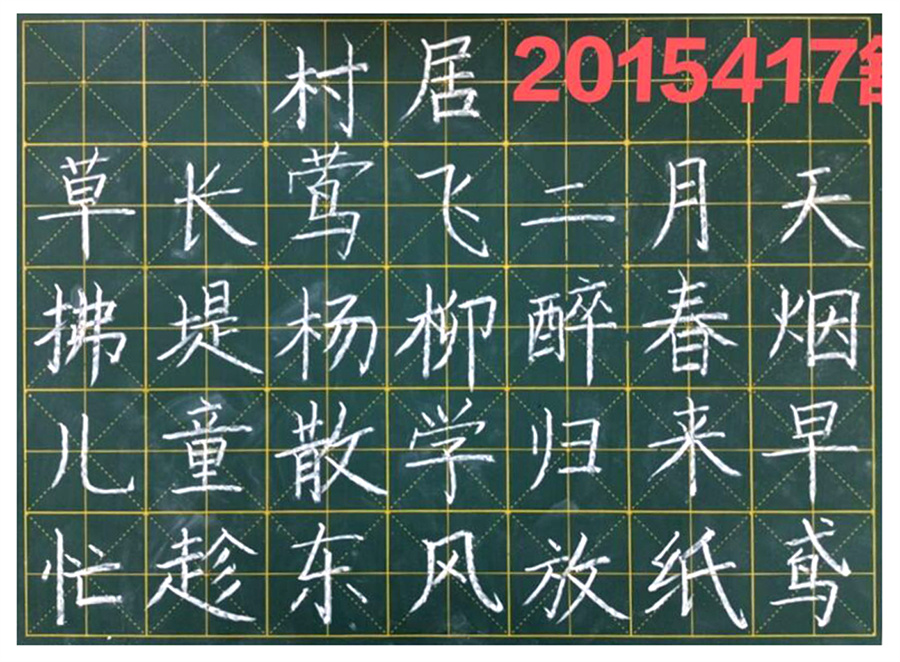 村居 2015417
草长莺飞二月天
拂堤杨柳醉春烟
儿童散学归来早
忙趁东风放纸鸢